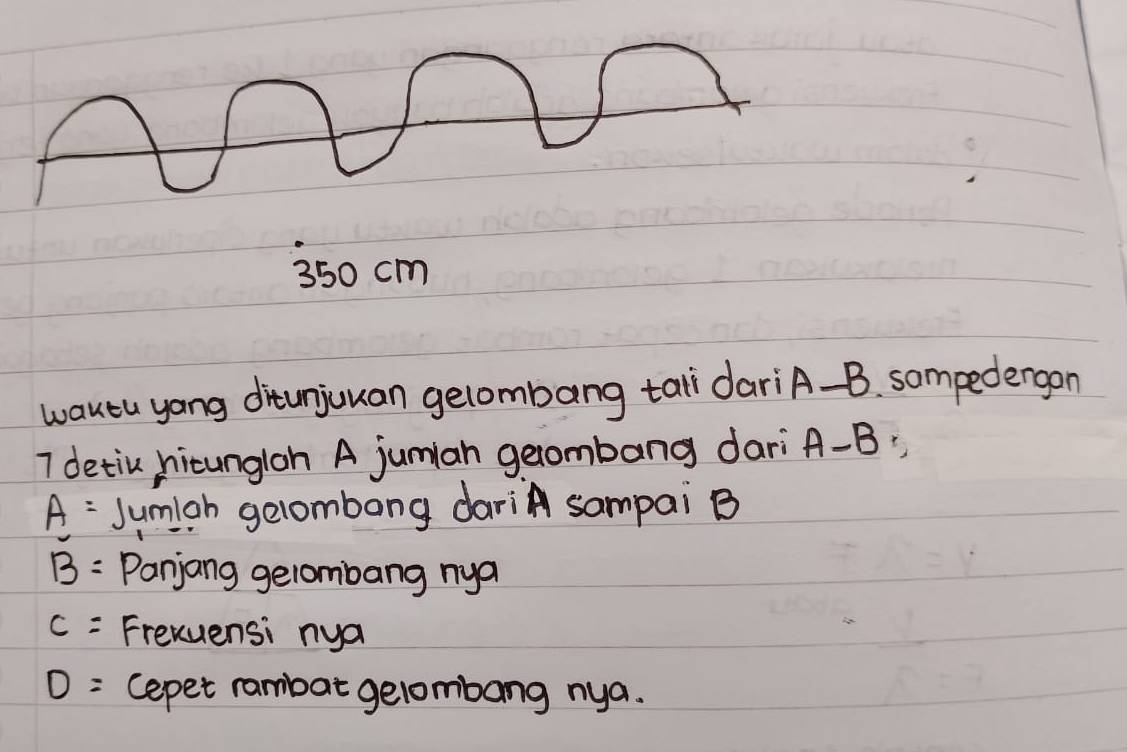 350 cm
waktu yang ditunjukan gelombang tali dari A-B. sampedengan
7 detik, hitunglah A jumlah gelombang dari A-B;
A = Jumlah gelombang dari A sampai B
B = Panjang gelombang nya
C = Frekuensi nya
D = Cepet rambat gelombang nya.